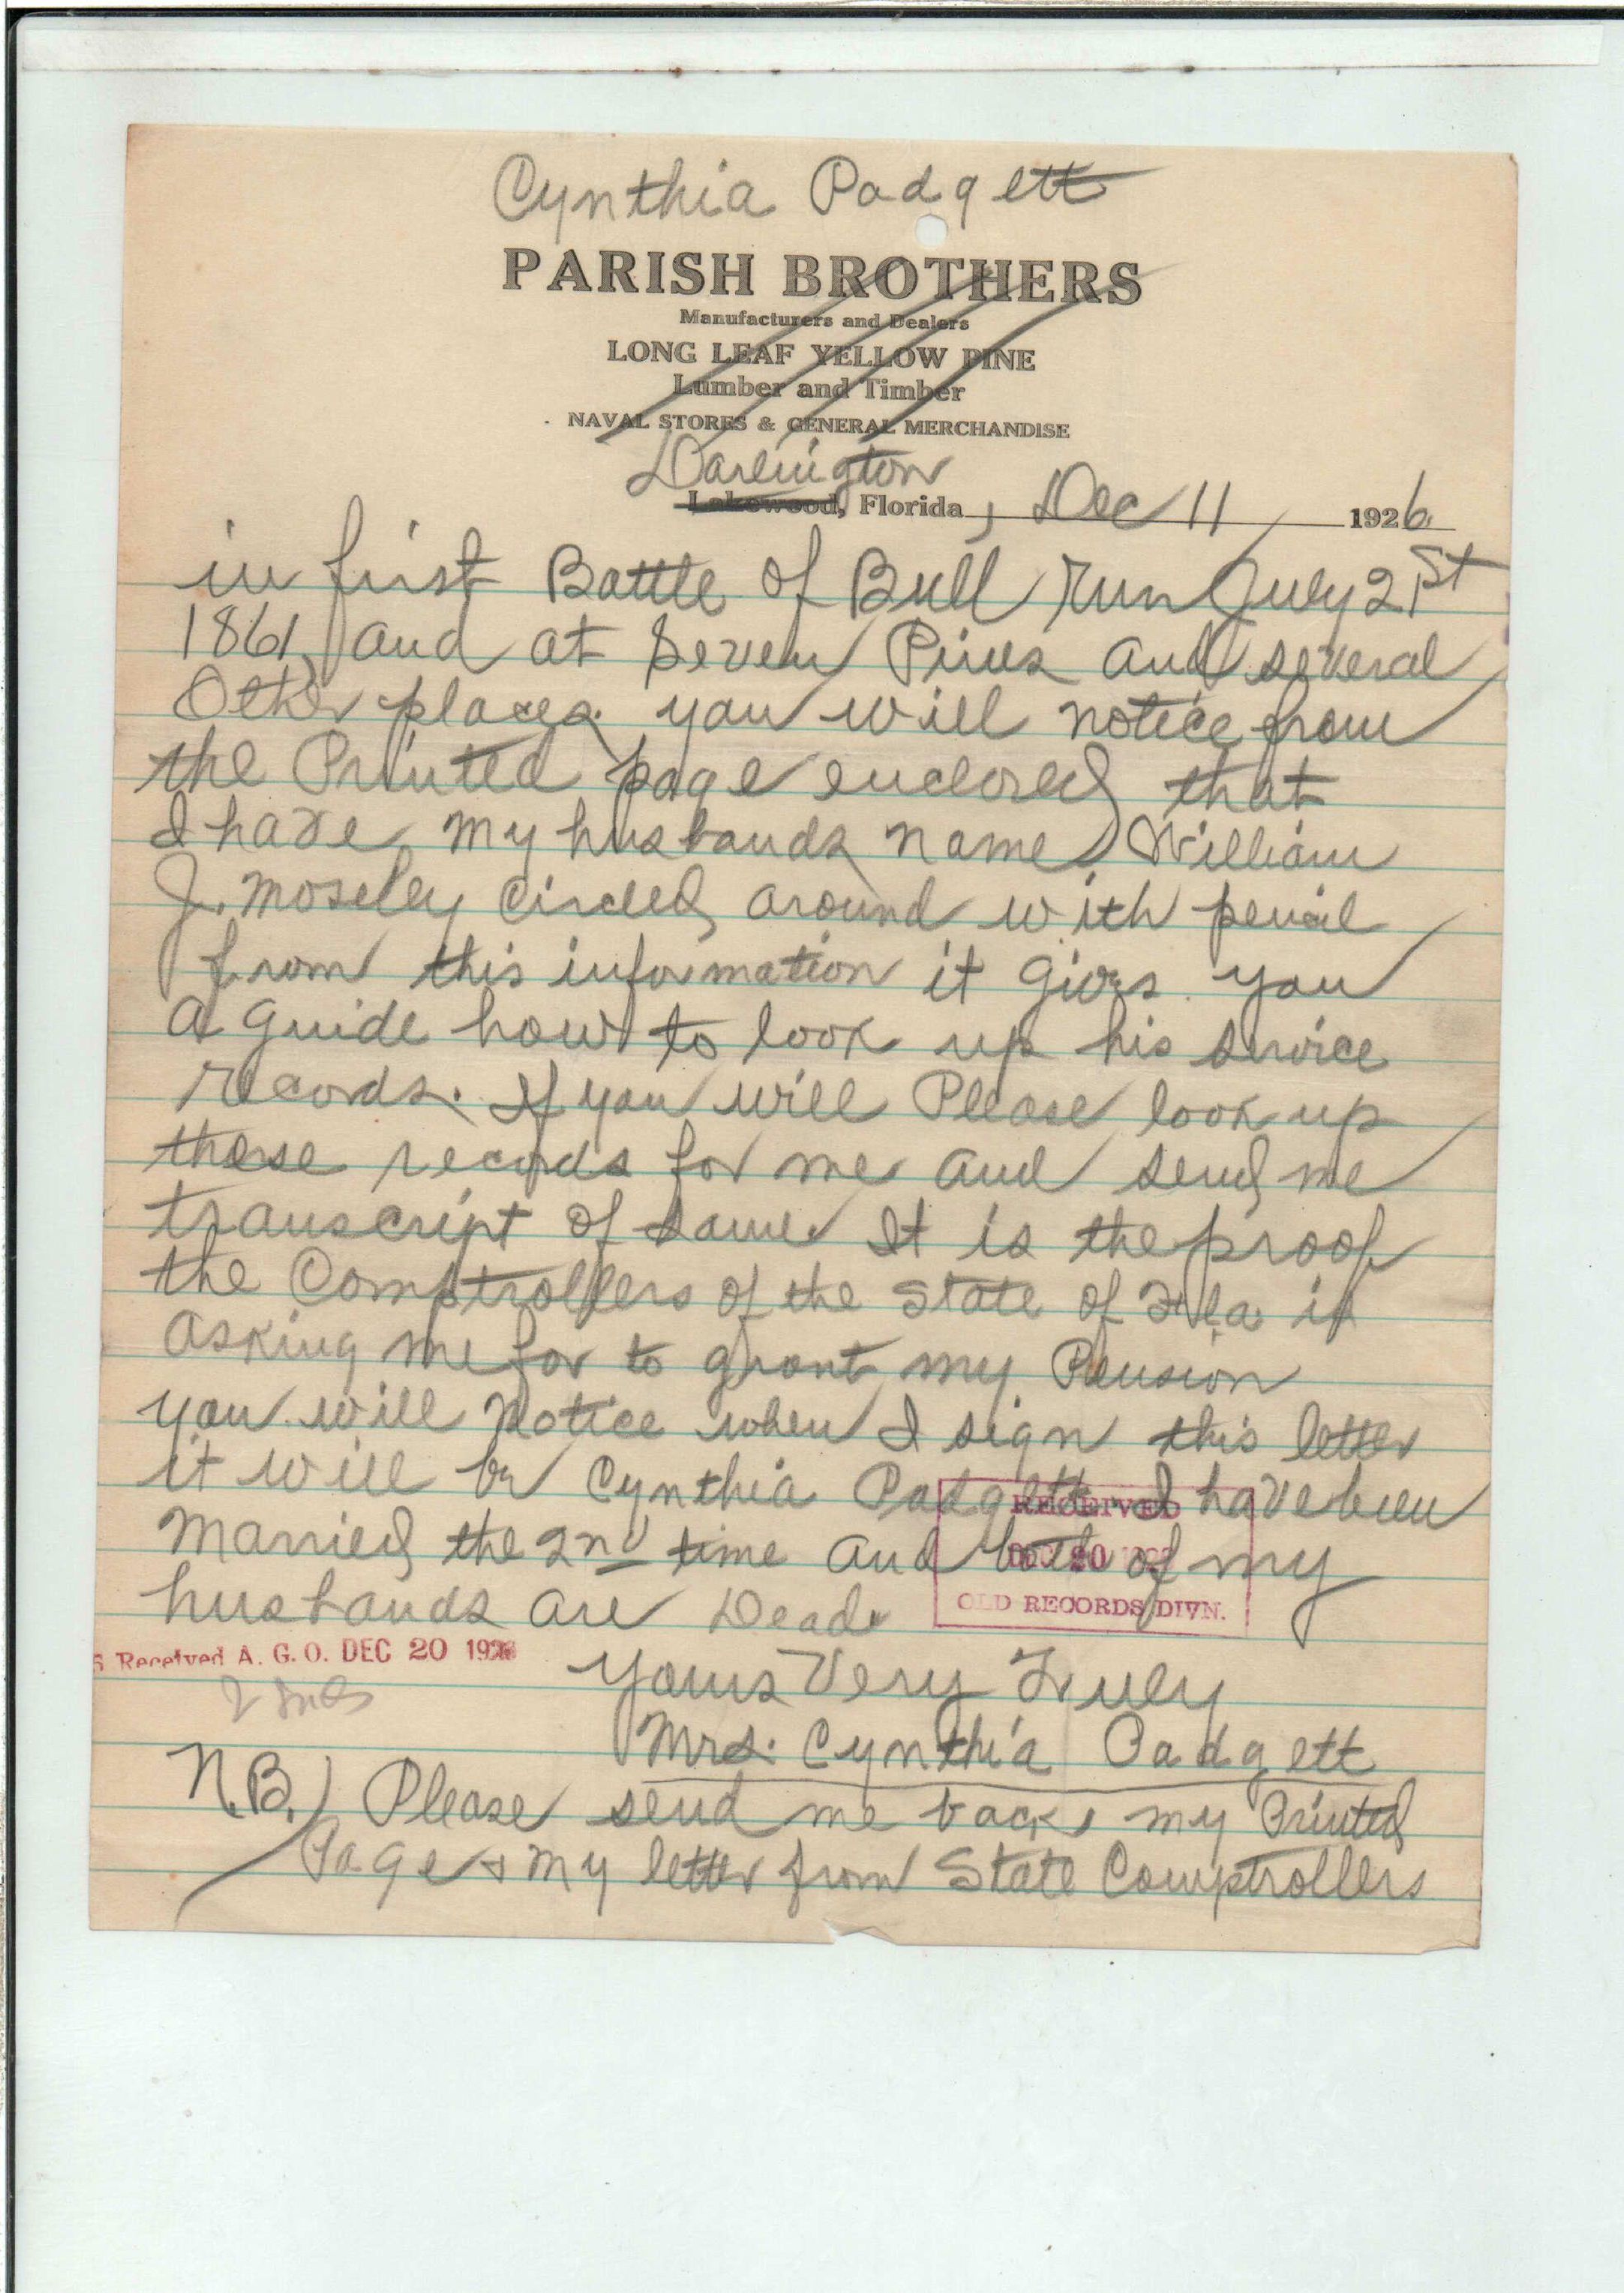 Cynthia Padgett
PARISH BROTHERS
Manufacturers and Dealers
LONG LEAF YELLOW PINE
Lumber and Timber
NAVAL STORES & GENERAL MERCHANDISE
Darlington
Lakewood, Florida, Dec 11 1926
in first Battle of Bull Run July 21st
1861, and at Seven Pines and several
Other places. you will notice from
the Printed page enclosed that
I have my husbands name William
J. Moseley Circled around with pencil
from this information it gives you
a guide how to look up his service
records. If you will Please look up
these records for me and send me
transcript of same. It is the proof
the Comptrollers of the State of Fla is
asking me for to grant my Pension
you will notice when I sign this letter
it will be Cynthia Padgett I have been
Married the 2nd time and both of my
husbands are Dead.
RECEIVED
DEC 20
OLD RECORDS DIVN.
Received A. G. O. DEC 20 1926
Yours Very Truly
2 Incls
Mrs. Cynthia Padgett
N.B.) Please send me back, my Printed
Page + my letter from State Comptrollers